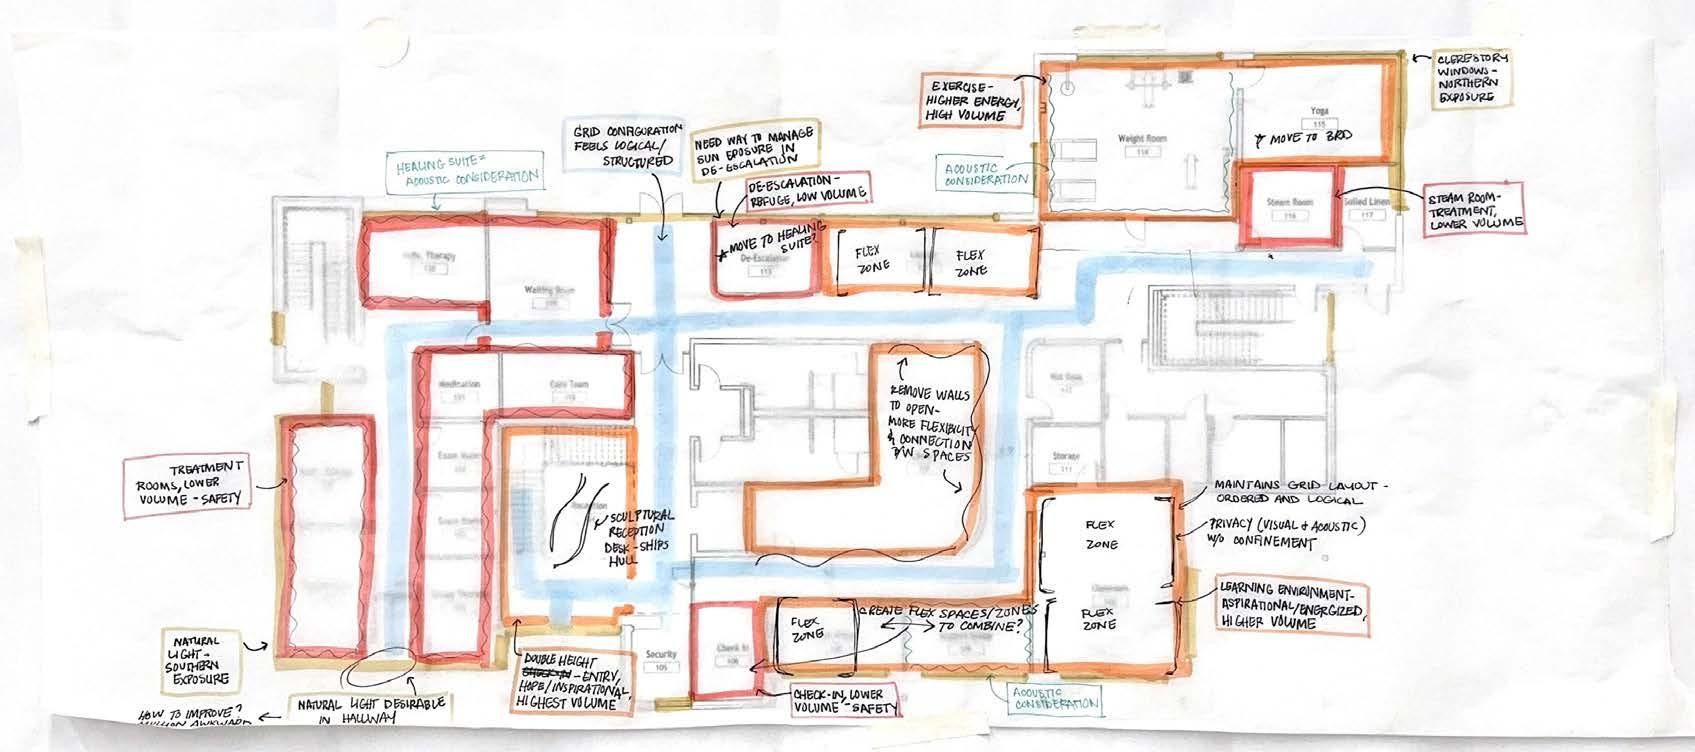 CLERESTORY
WINDOWS-
NORTHERN
EXPOSURE
EXERCISE-
HIGHER ENERGY,
HIGH VOLUME
Yoga
115
* MOVE TO 3RD
Weight Room
114
GRID CONFIGURATION
FEELS LOGICAL/
STRUCTURED
NEED WAY TO MANAGE
SUN EPOSURE IN
DE-ESCALATION
HEALING SUITE=
ACOUSTIC CONSIDERATION
ACOUSTIC
CONSIDERATION
DE-ESCALATION-
REFUGE, LOW VOLUME
Steam Room
116
Soiled Linen
117
STEAM ROOM-
TREATMENT,
LOWER VOLUME
* MOVE TO HEALING
SUITE?
De-Escalation
113
FLEX
ZONE
FLEX
ZONE
Therapy
Waiting Room
REMOVE WALLS
TO OPEN-
MORE FLEXIBILITY
& CONNECTION
B/W SPACES
Medication
Care Team
Storage
111
TREATMENT
ROOMS, LOWER
VOLUME-SAFETY
MAINTAINS GRID LAYOUT-
ORDERED AND LOGICAL
PRIVACY (VISUAL & ACOUSTIC)
W/O CONFINEMENT
SCULPTURAL
RECEPTION
DESK-SHIPS
HULL
FLEX
ZONE
FLEX
ZONE
LEARNING ENVIRINMENT-
ASPIRATIONAL/ENERGIZED,
HIGHER VOLUME
CREATE FLEX SPACES/ZONES
TO COMBINE?
FLEX
ZONE
NATURAL
LIGHT-
SOUTHERN
EXPOSURE
Security
105
Check In
106
DOUBLE HEIGHT
CHECK-IN-ENTRY,
HOPE/INSPIRATIONAL,
HIGHEST VOLUME
CHECK-IN, LOWER
VOLUME-SAFETY
ACOUSTIC
CONSIDERATION
NATURAL LIGHT DESIRABLE
IN HALLWAY
HOW TO IMPROVE?
MULLION AWKWARD